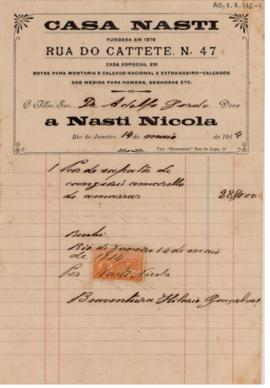 AG,1,1,116-1
CASA NASTI
FUNDADA EM 1879
RUA DO CATTETE, N. 47
CASA ESPECIAL EM
BOTAS PARA MONTARIA E CALÇADO NACIONAL E EXTRANGEIRO-CALÇADOS
SOB MEDIDA PARA HOMENS, SENHORAS ETC.
O Illm. Snr. Dr. Adolfo Deve
a Nasti Nicola
Rio de Janeiro, 14 de maio de 1914
Typ. "Economica" Rua da Lapa,
1 Par de sapatos de
amarello
de amarrar 28$000
Recebi
Rio de Janeiro 14 de maio
de 1914
Por Nasti Nicola
Boaventura Hilario Gonçalves